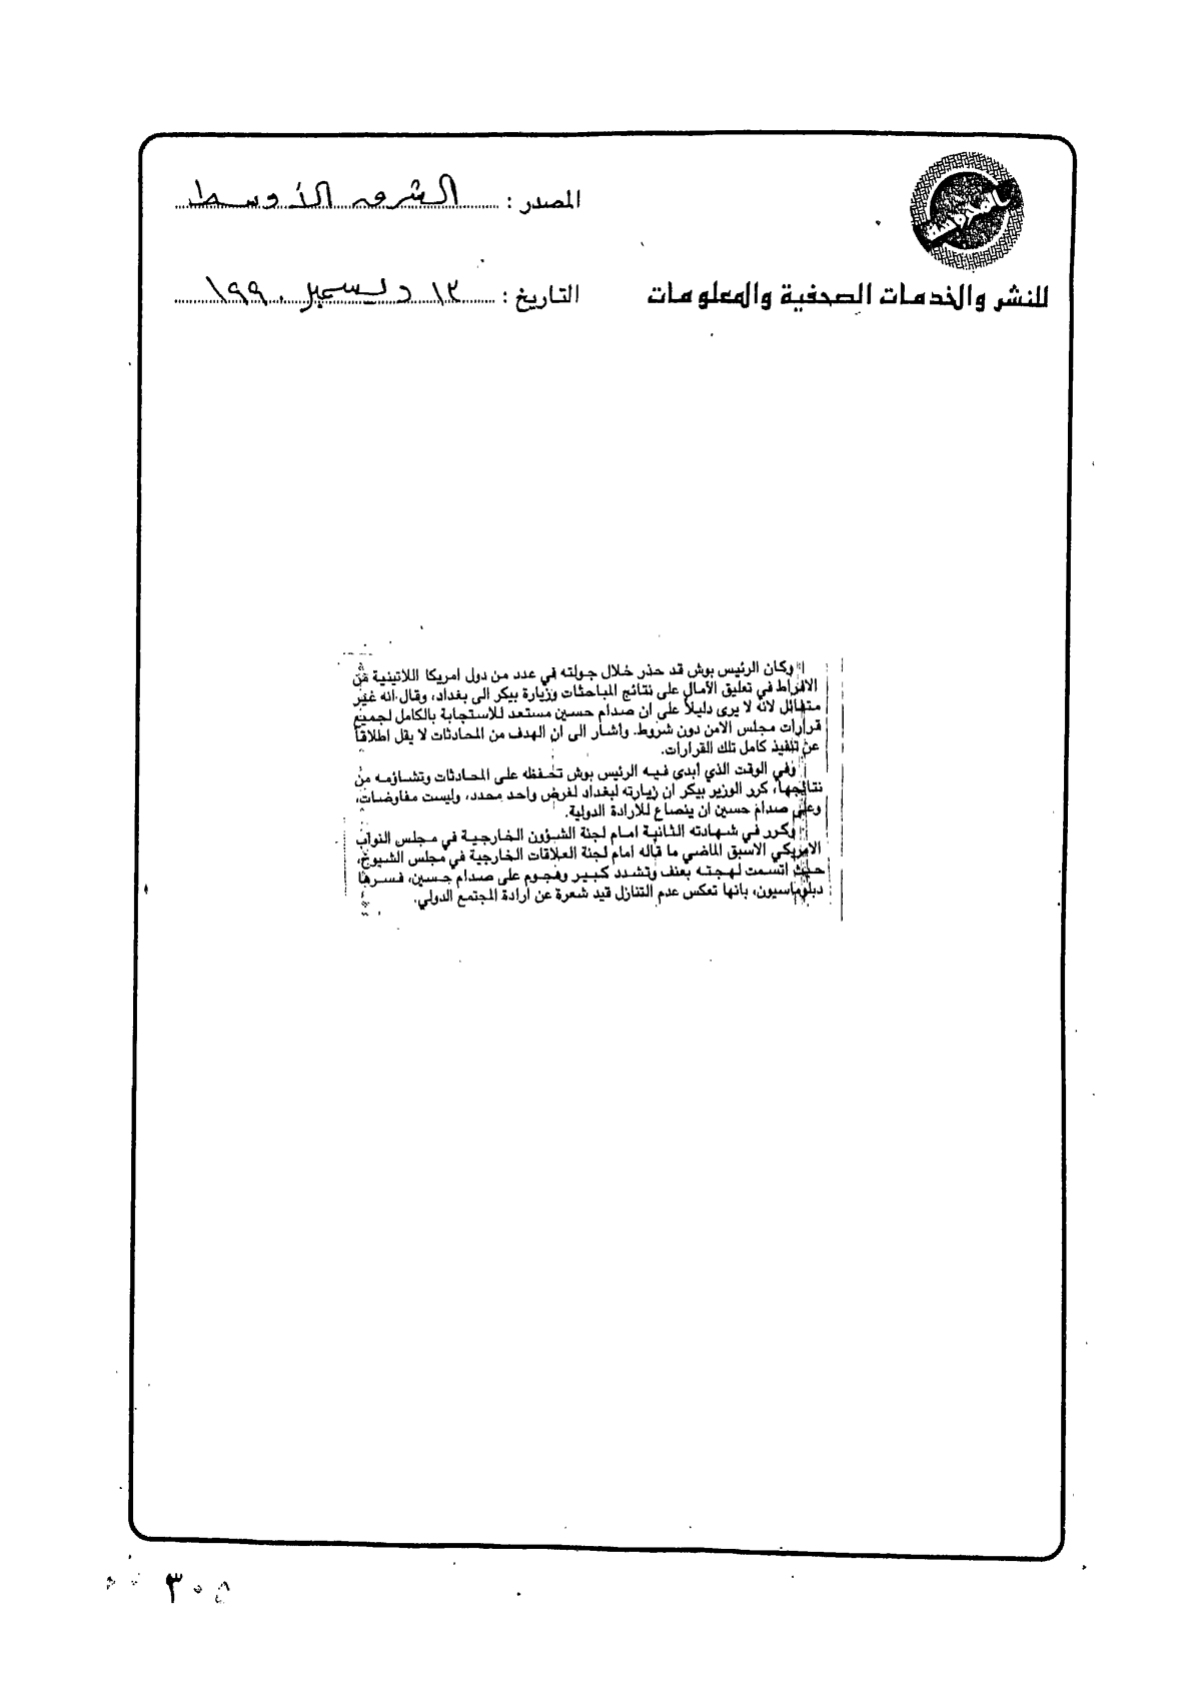 المصدر : الشرق الأوسط
للنشر والخدمات الصحفية والمعلومات
التاريخ : ١٢ ديسمبر ١٩٩٠
وكان الرئيس بوش قد حذر خلال جولته في عدد من دول امريكا اللاتينية من
الافراط في تعليق الآمال على نتائج المباحثات وزيارة بيكر الى بغداد، وقال انه غير
متفائل لانه لا يرى دليلاً على ان صدام حسين مستعد للاستجابة بالكامل لجميع
قرارات مجلس الامن دون شروط. واشار الى ان الهدف من المحادثات لا يقل اطلاقاً
عن تنفيذ كامل تلك القرارات.
وفي الوقت الذي أبدى فيه الرئيس بوش تحفظه على المحادثات وتشاؤمه من
نتائجها، كرر الوزير بيكر ان زيارته لبغداد لغرض واحد محدد، وليست مفاوضات،
وعلى صدام حسين ان ينصاع للارادة الدولية.
وكرر في شهادته الثانية امام لجنة الشؤون الخارجية في مجلس النواب
الامريكي الاسبق الماضي ما قاله امام لجنة العلاقات الخارجية في مجلس الشيوخ،
حيث اتسمت لهجته بعنف وتشدد كبير وهجوم على صدام حسين، فسرها
دبلوماسيون، بانها تعكس عدم التنازل قيد شعرة عن ارادة المجتمع الدولي.
٣٠٥